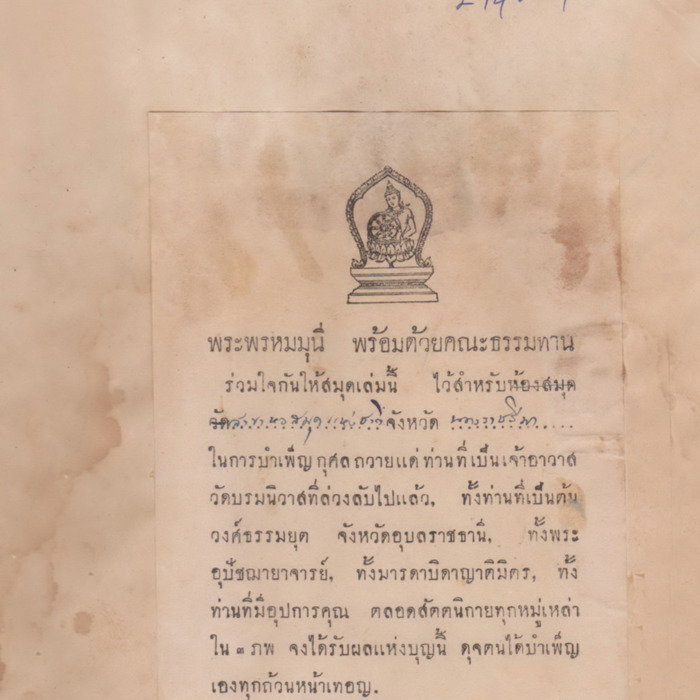 พระพรหมมุนี พร้อมด้วยคณะธรรมทาน
ร่วมใจกันให้สมุดเล่มนี้ ไว้สำหรับห้องสมุด
วัดสาขาหอสมุดแห่งชาติจังหวัด นครราชสีมา
ในการบำเพ็ญกุศลถวายแด่ท่านที่เป็นเจ้าอาวาส
วัดบรมนิวาสที่ล่วงลับไปแล้ว, ทั้งท่านที่เป็นต้น
วงศ์ธรรมยุต จังหวัดอุบลราชธานี, ทั้งพระ
อุปัชฌายาจารย์, ทั้งมารดาบิดาญาติมิตร, ทั้ง
ท่านที่มีอุปการคุณ ตลอดสัตตนิกายทุกหมู่เหล่า
ใน ๓ ภพ จงได้รับผลแห่งบุญนี้ ดุจตนได้บำเพ็ญ
เองทุกถ้วนหน้าเทอญ.